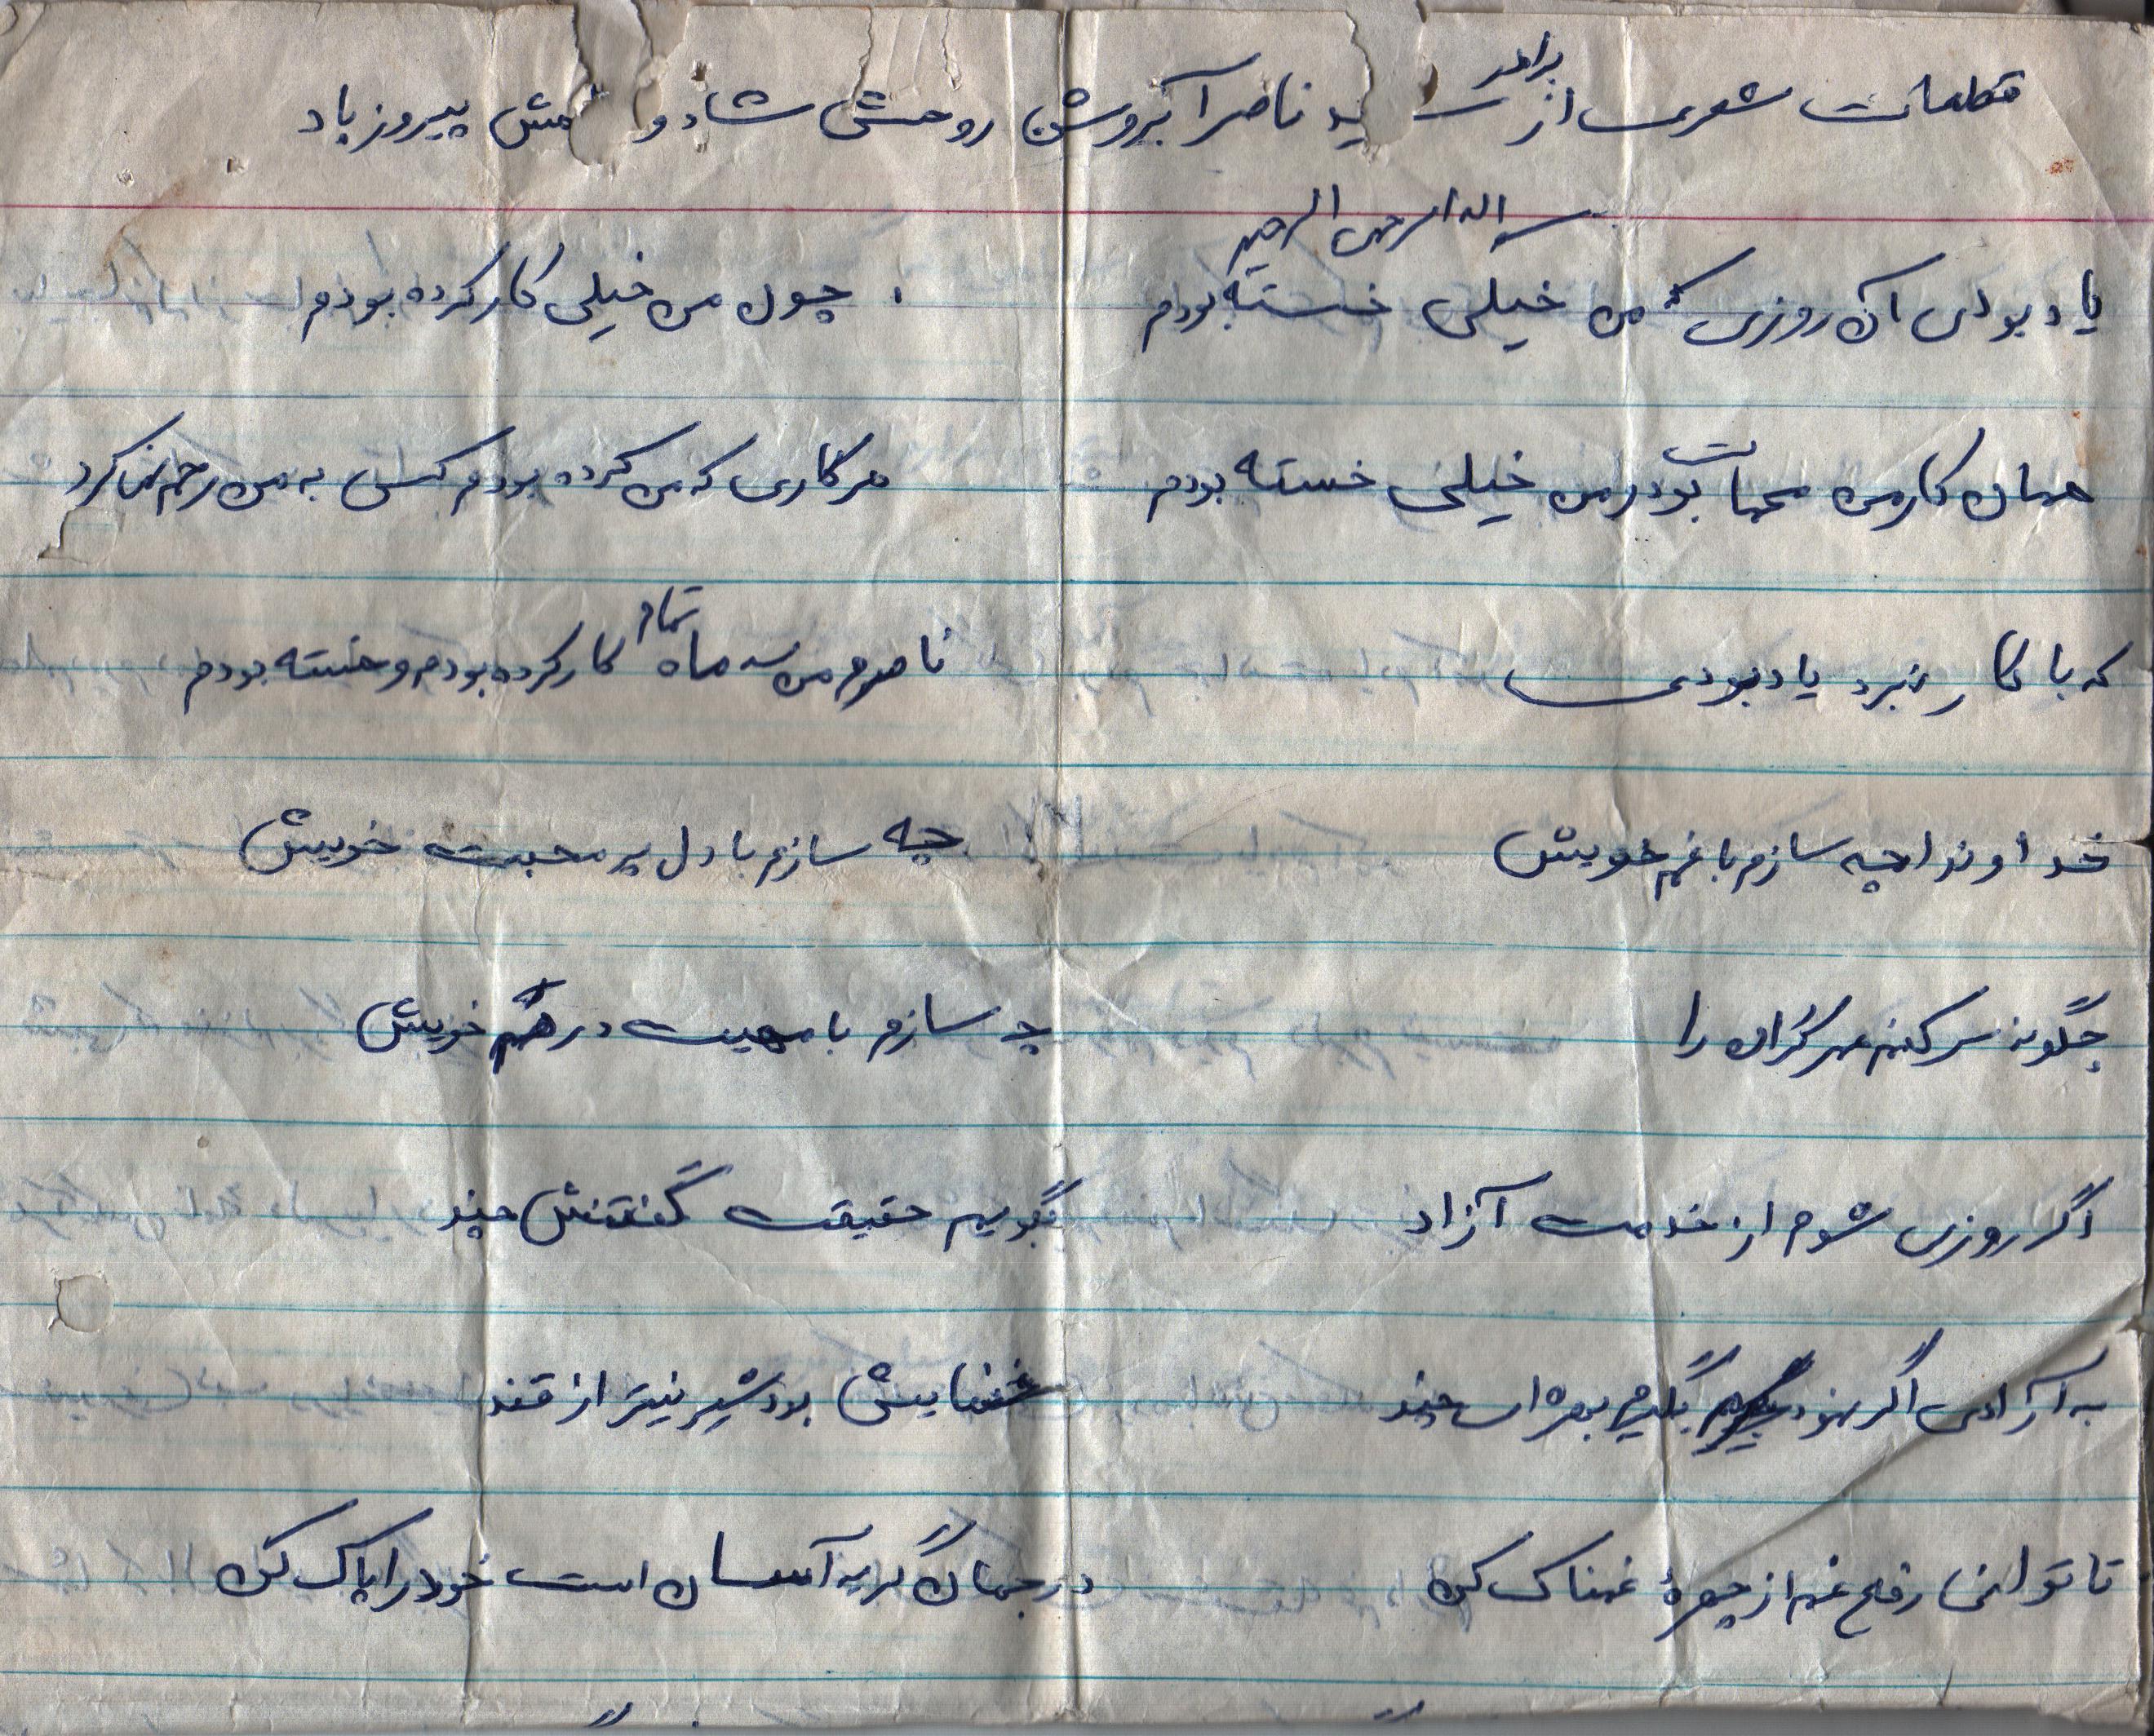 قطعات شعری از برادر ناصر آبروشن روحش شاد و پیروز باد
بسم الله الرحمن الرحیم
یاد بودی آن روزی که من خیلی خسته بودم چون من خیلی کار کرده بودم
همان کار من بود من خیلی خسته بودم هر کاری که من کرده بودم کسی به من رحم نکرد
که با کار نبرد یاد بودی ناصرم من سه ماه تمام کار کرده بودم و خسته بودم
خداوندا چه سازم با غم خویش چه سازم با دل پر محبت خویش
چگونه سر کنم را چه سازم با درهم خویش
اگر روزی شوم از خدمت آزاد بگویم حقیقت گفتنش چند
به آزادی اگر بگیرم بهره ای چند بود شیرینتر از قند
تا توانی رفع غم از چهرهٔ غمناک کن در جهان گریه آسان است خود را پاک کن